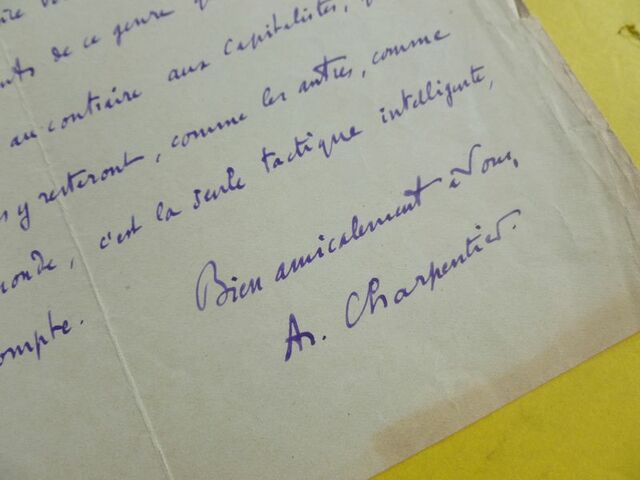 de ce genre
au contraire aux capitalistes,
y resteront, comme les autres, comme
c'est la seule tactique intelligente,
compte.
Bien amicalement à vous,
Ar. Charpentier.